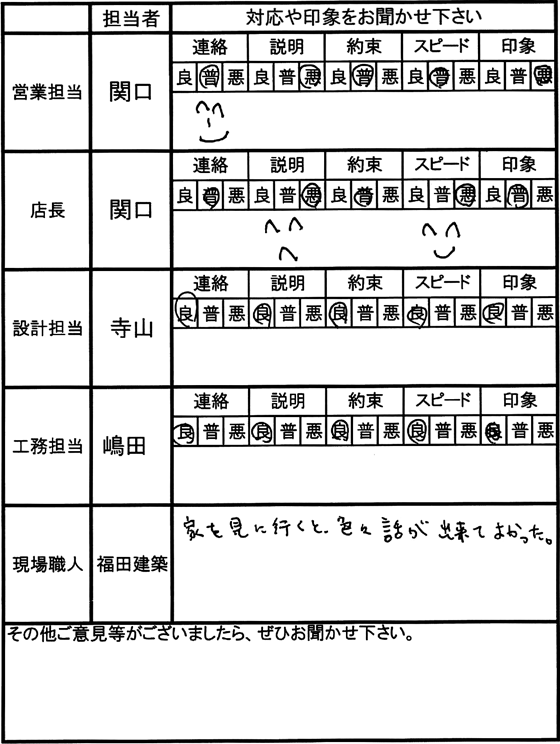 担当者 対応や印象をお聞かせ下さい
営業担当 関口
連絡 説明 約束 スピード 印象
良 普 悪 良 普 悪 良 普 悪 良 普 悪 良 普 悪
店長 関口
連絡 説明 約束 スピード 印象
良 普 悪 良 普 悪 良 普 悪 良 普 悪 良 普 悪
設計担当 寺山
連絡 説明 約束 スピード 印象
良 普 悪 良 普 悪 良 普 悪 良 普 悪 良 普 悪
工務担当 嶋田
連絡 説明 約束 スピード 印象
良 普 悪 良 普 悪 良 普 悪 良 普 悪 良 普 悪
現場職人 福田建築
家を見に行くと、色々話が出来てよかった。
その他ご意見等がございましたら、ぜひお聞かせ下さい。